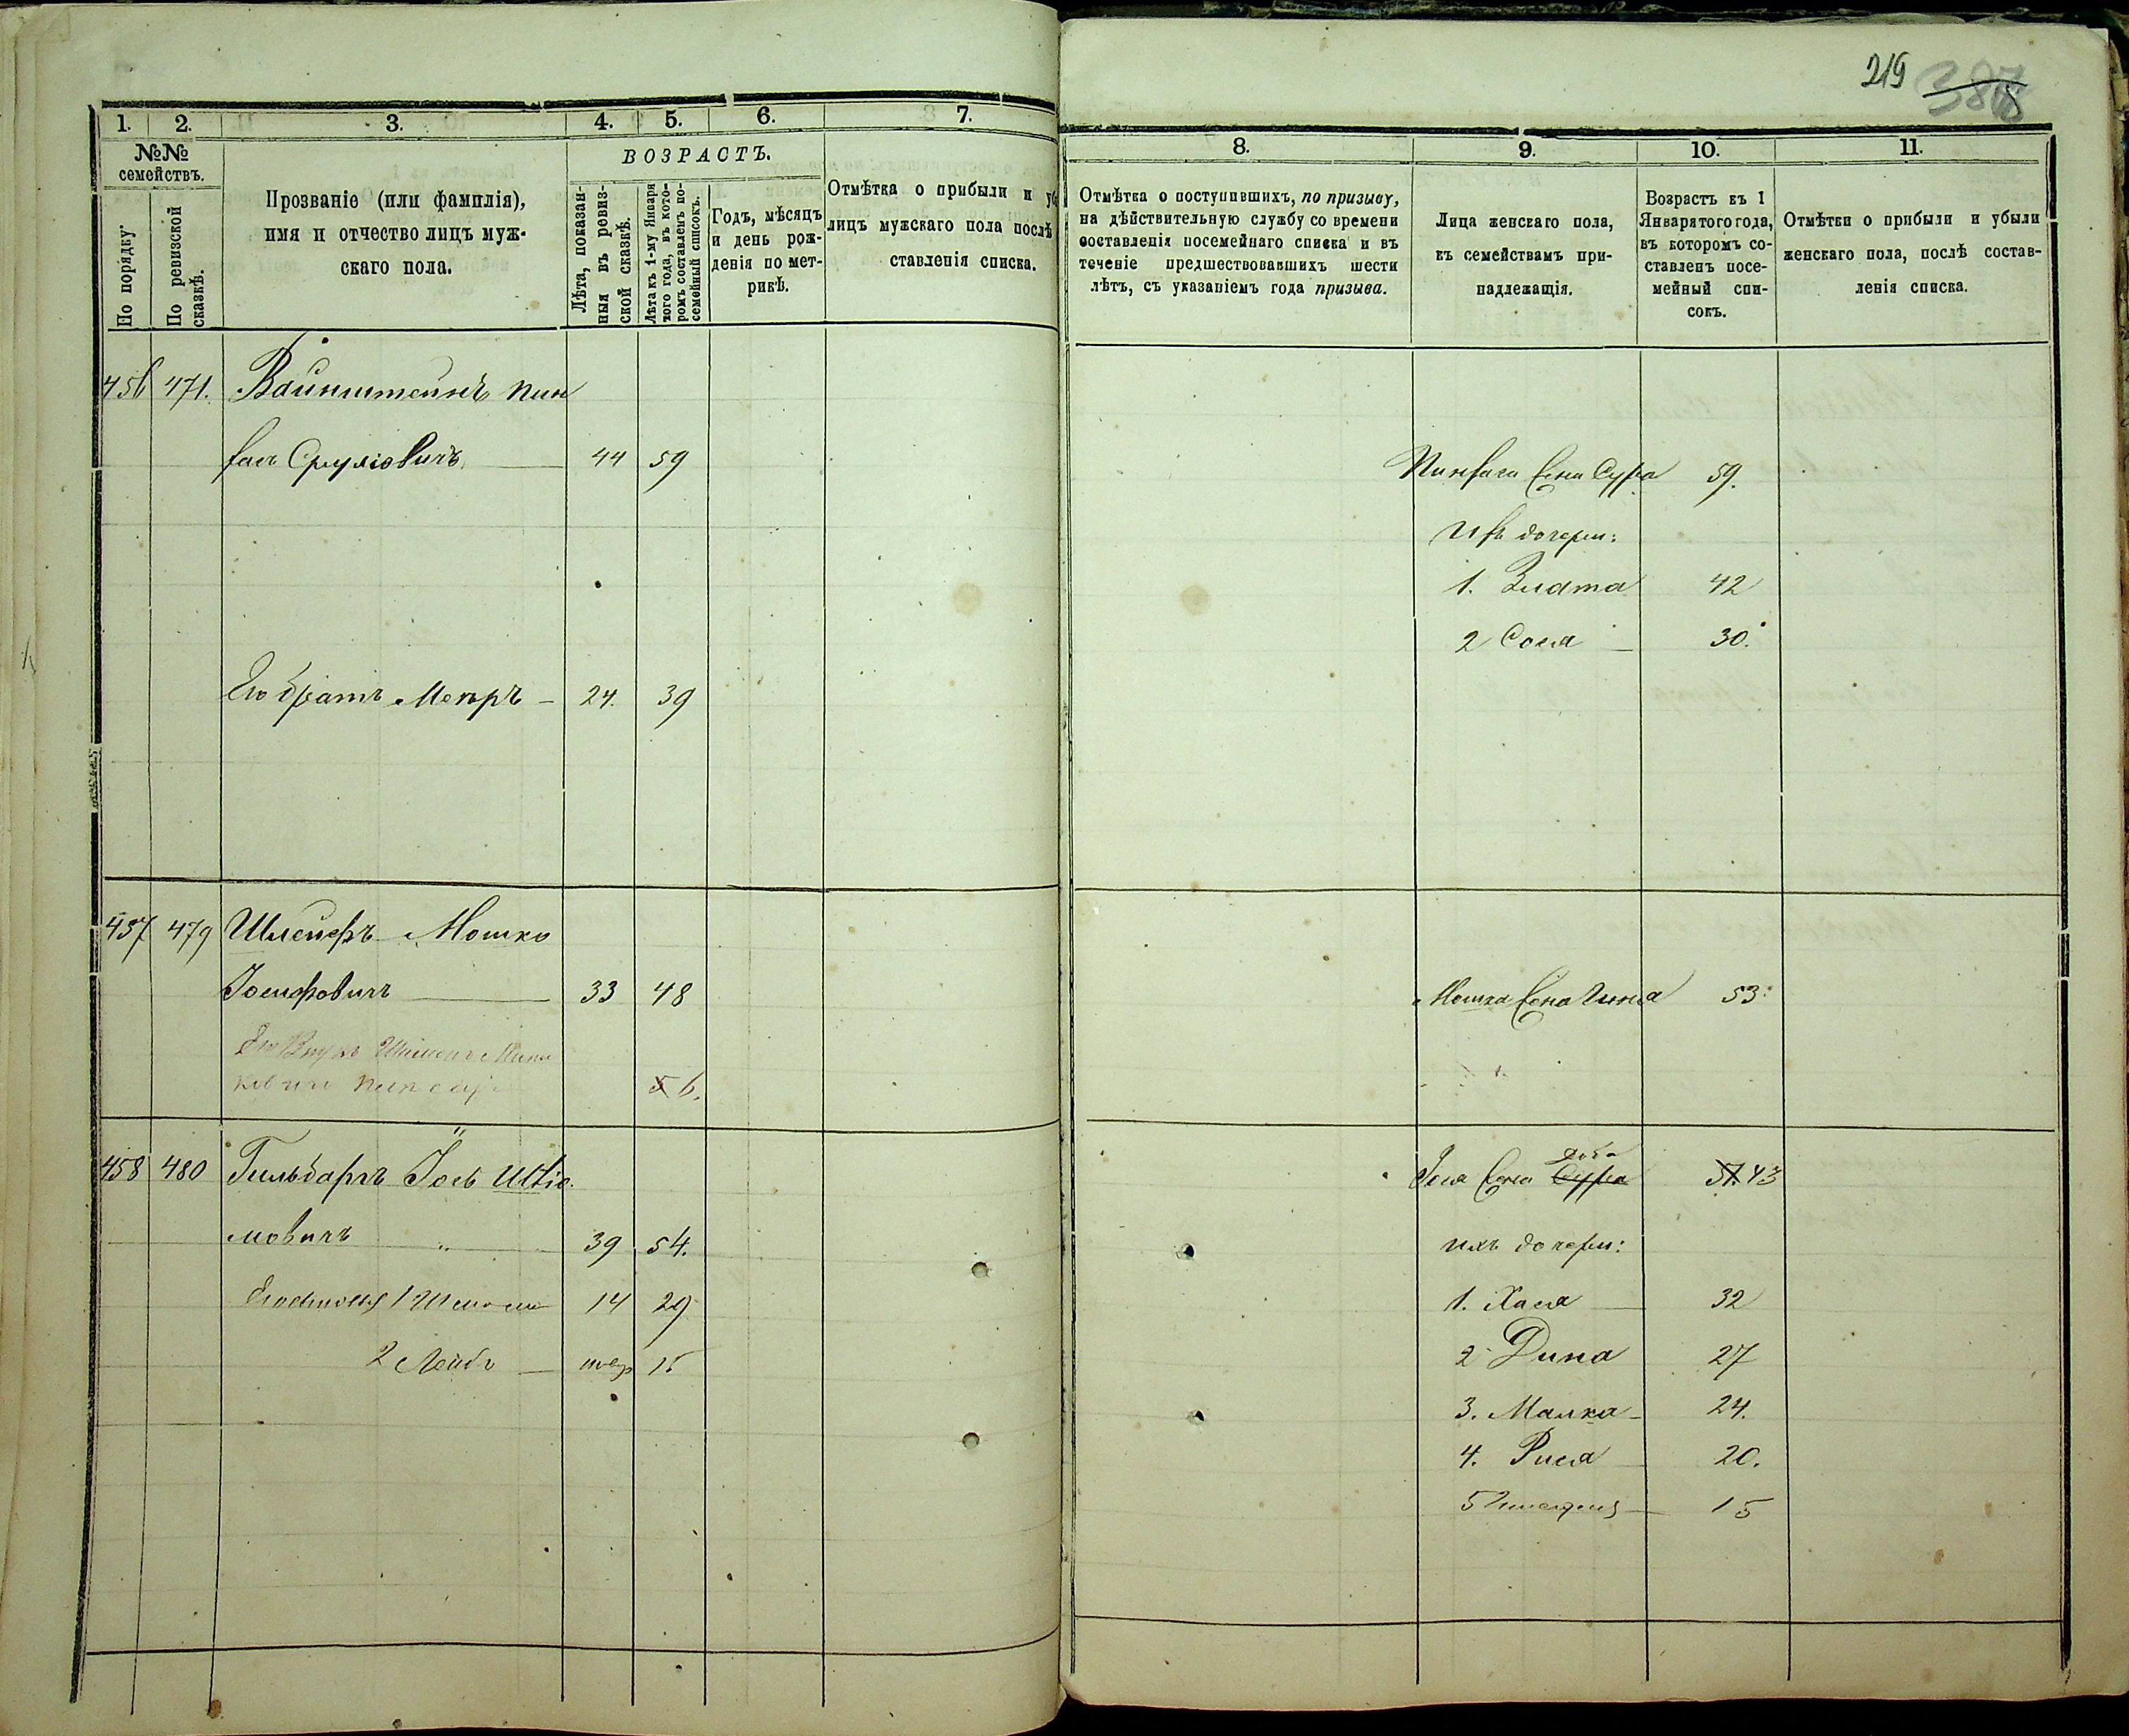 1. 2. 3. 4. 5. 6. 7.
№№ семействъ.
По порядку
По ревизской сказкѣ.
Прозваніе (или фамилія),
имя и отчество лицъ муж-
скаго пола.
ВОЗРАСТЪ.
Лѣта, показан-
ныя въ ревиз-
ской сказкѣ.
Лѣта къ 1-му Января
того года, въ кото-
ромъ составленъ по-
семейный списокъ.
Годъ, мѣсяцъ
и день рож-
денія по мет-
рикѣ.
Отмѣтка о прибыли и уб
лицъ мужскаго пола послѣ
ставленія списка.
456 471. Вайнштейнъ Пин
хасъ Сруліовичъ 44 59
Его братъ Мееръ 24. 39
457 479 Шлейферъ Мошко
Іосифовичъ 33 48
Его Внукъ
5 6.
458 480 Гильбаргъ Іось Шліо-
мовичъ 39 54.
Его сыновья 1 Шлома 14 29
2 Лейбъ 15
219 387
8. 9. 10. 11.
Отмѣтка о поступившихъ, по призыву,
на дѣйствительную службу со времени
составленія посемейнаго списка и въ
теченіе предшествовавшихъ шести
лѣтъ, съ указаніемъ года призыва.
Лица женскаго пола,
къ семействамъ при-
надлежащія.
Возрастъ къ 1
Января того года,
въ которомъ со-
ставленъ посе-
мейный спи-
сокъ.
Отмѣтки о прибыли и убыли
женскаго пола, послѣ состав-
ленія списка.
Пинхаса жена Сура 59.
Ихъ дочери:
1. Злата 42
2 Сося 30.
Мошка жена 53.
Доба
Іося жена Сура 51. 43
ихъ дочери:
1. Хася 32
2 Дина 27
3. Малка 24.
4. Рися 20.
5 15